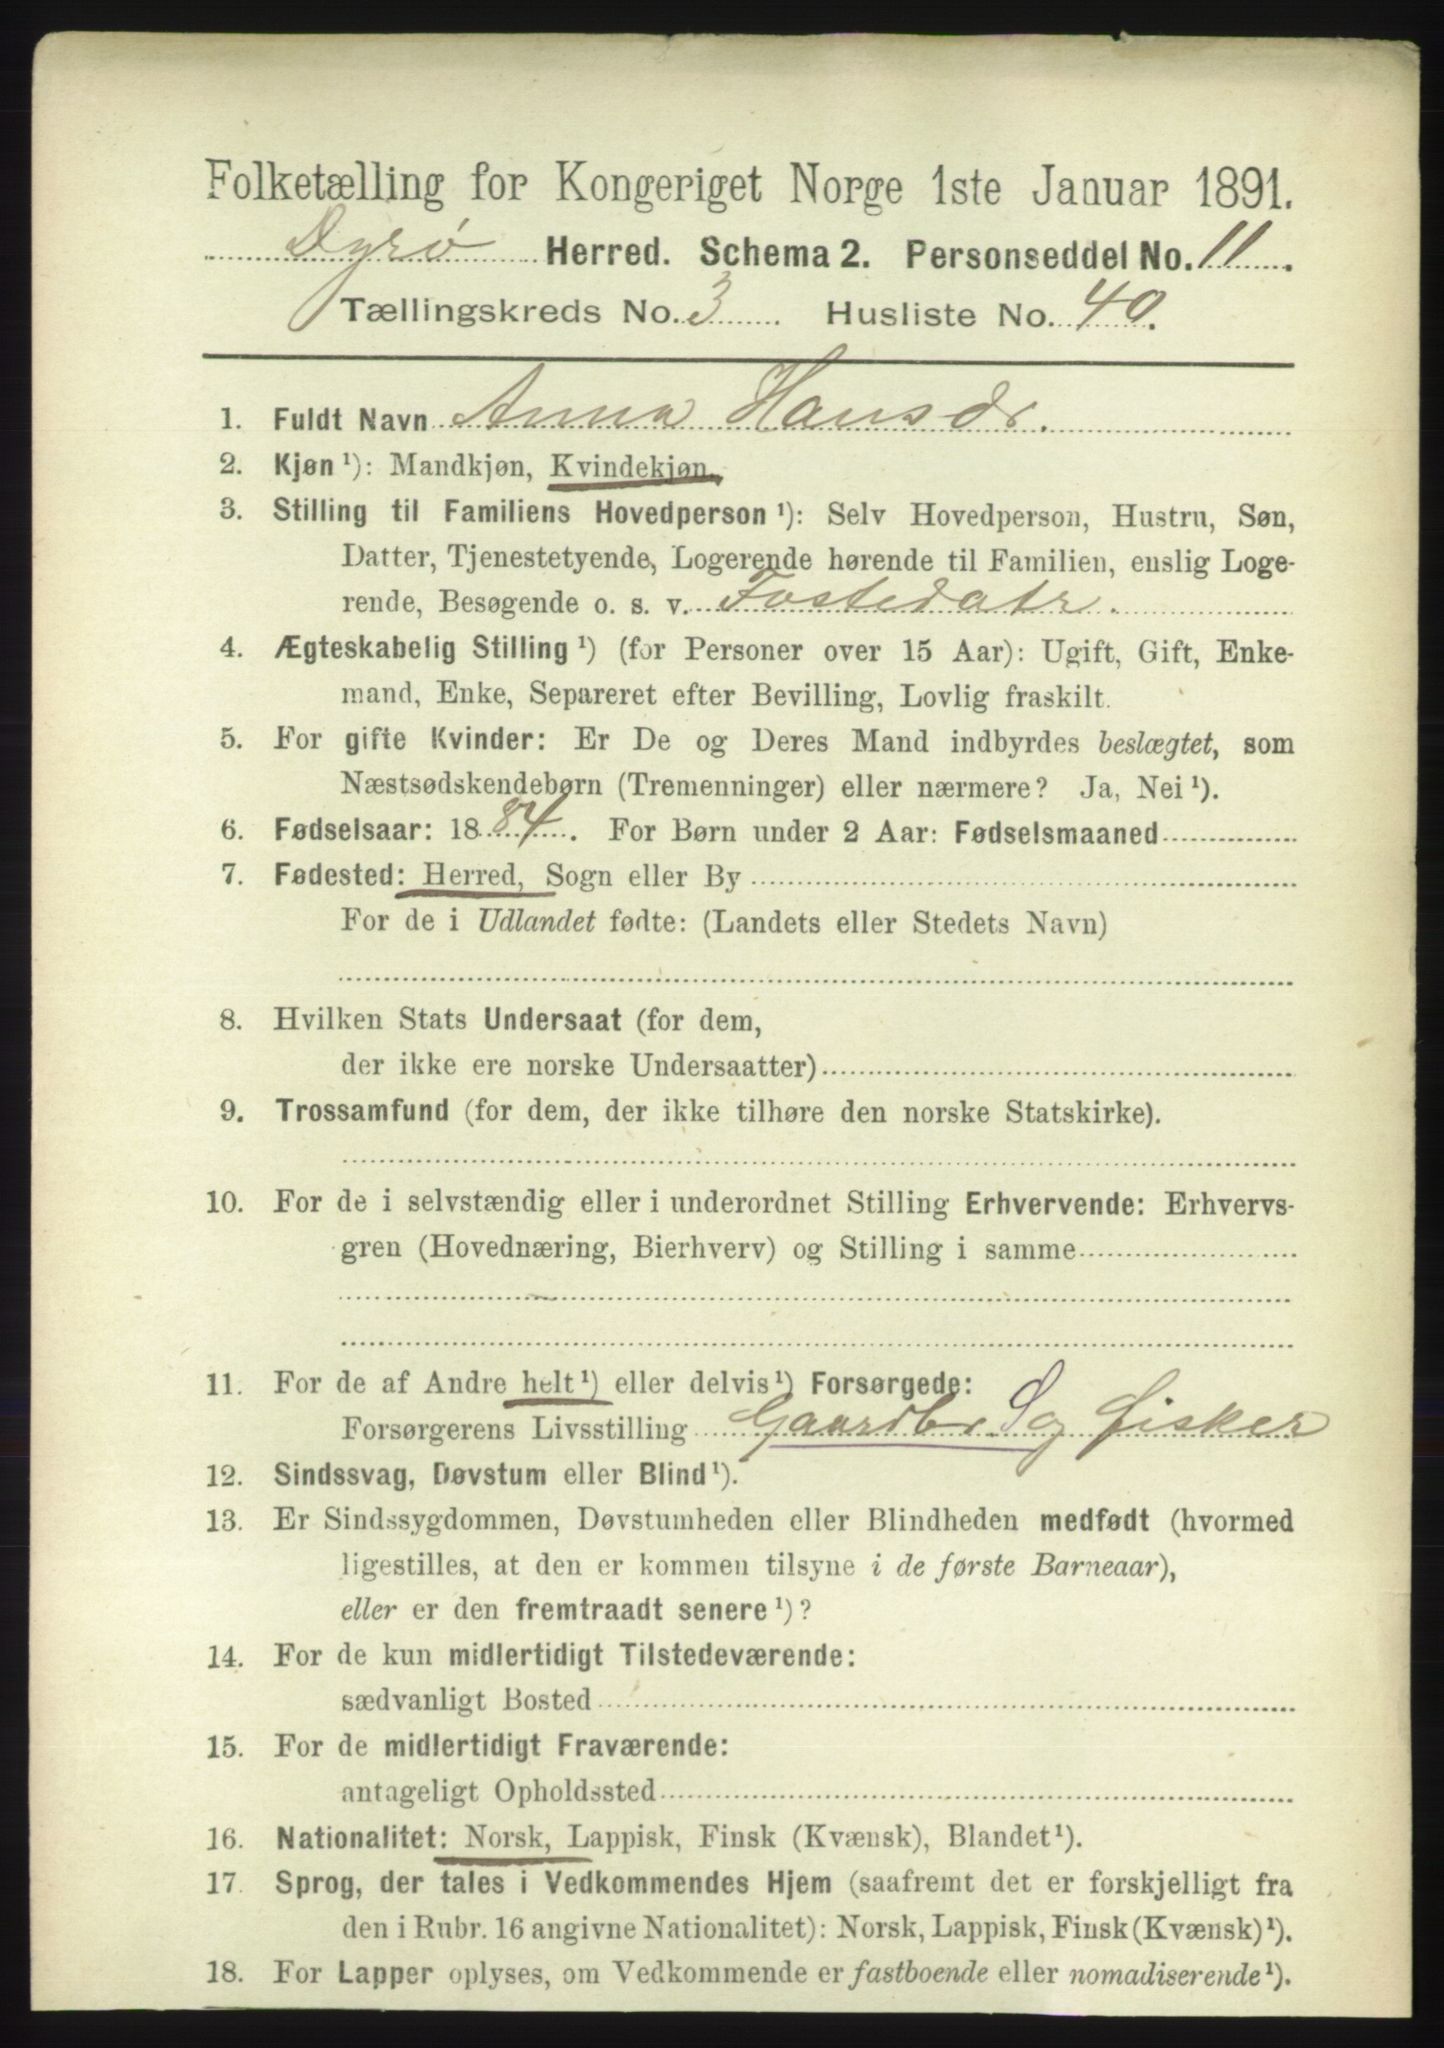 Folketælling for Kongeriget Norge 1ste Januar 1891.
Dyrø Herred. Schema 2. Personseddel No. 11.
Tællingskreds No. 3 Husliste No. 40.
1. Fuldt Navn Anna Hansdr.
2. Kjøn ¹): Mandkjøn, Kvindekjøn.
3. Stilling til Familiens Hovedperson ¹): Selv Hovedperson, Hustru, Søn,
Datter, Tjenestetyende, Logerende hørende til Familien, enslig Loge-
rende, Besøgende o. s. v. Fostedatr.
4. Ægteskabelig Stilling ¹) (for Personer over 15 Aar): Ugift, Gift, Enke-
mand, Enke, Separeret efter Bevilling, Lovlig fraskilt.
5. For gifte Kvinder: Er De og Deres Mand indbyrdes beslægtet, som
Næstsødskendebørn (Tremenninger) eller nærmere? Ja, Nei ¹).
6. Fødselsaar: 1884. For Børn under 2 Aar: Fødselsmaaned
7. Fødested: Herred, Sogn eller By
For de i Udlandet fødte: (Landets eller Stedets Navn)
8. Hvilken Stats Undersaat (for dem,
der ikke ere norske Undersaatter)
9. Trossamfund (for dem, der ikke tilhøre den norske Statskirke).
10. For de i selvstændig eller i underordnet Stilling Erhvervende: Erhvervs-
gren (Hovednæring, Bierhverv) og Stilling i samme
11. For de af Andre helt ¹) eller delvis ¹) Forsørgede:
Forsørgerens Livsstilling Gaardbr S og fisker
12. Sindssvag, Døvstum eller Blind ¹).
13. Er Sindssygdommen, Døvstumheden eller Blindheden medfødt (hvormed
ligestilles, at den er kommen tilsyne i de første Barneaar),
eller er den fremtraadt senere ¹)?
14. For de kun midlertidigt Tilstedeværende:
sædvanligt Bosted
15. For de midlertidigt Fraværende:
antageligt Opholdssted
16. Nationalitet: Norsk, Lappisk, Finsk (Kvænsk), Blandet ¹).
17. Sprog, der tales i Vedkommendes Hjem (saafremt det er forskjelligt fra
den i Rubr. 16 angivne Nationalitet): Norsk, Lappisk, Finsk (Kvænsk) ¹).
18. For Lapper oplyses, om Vedkommende er fastboende eller nomadiserende ¹).